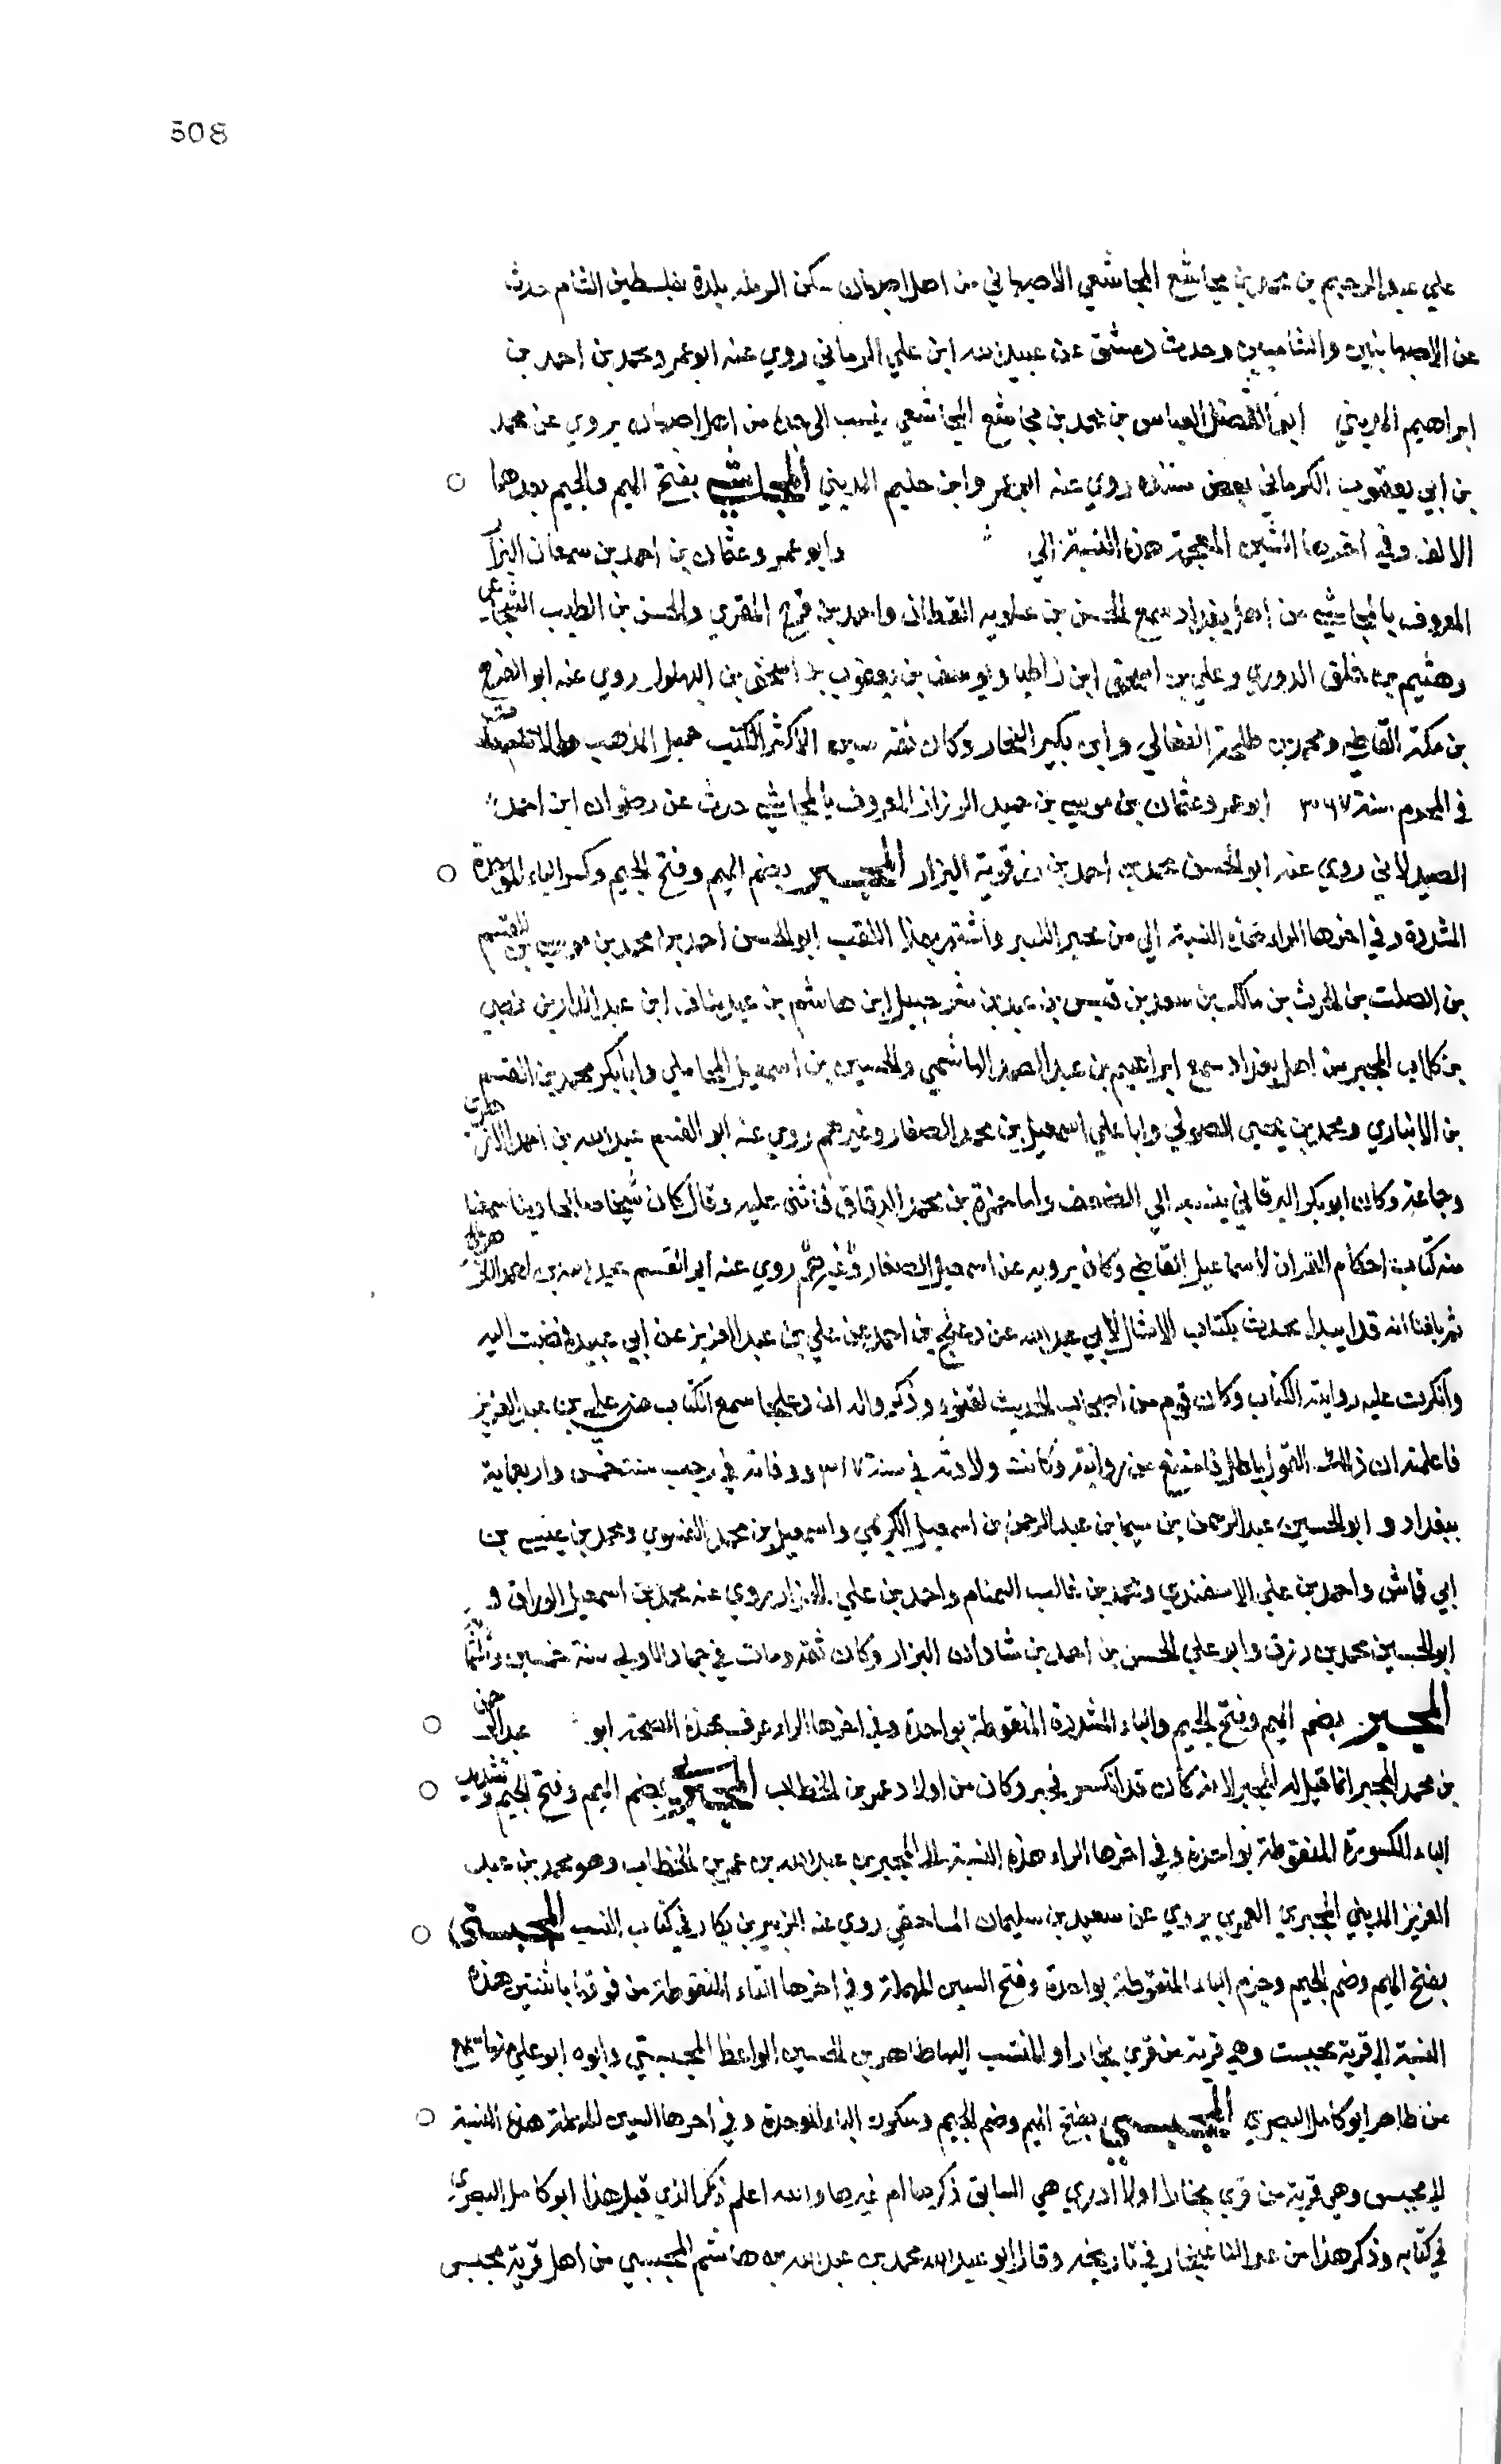 508
علي عبد الرحيم بن محمد بن مجاشع المجاشعي الاصبهاني من اهل اصبهان سكن الرمله بلدة بفلسطين الشام حدث
عن الاصبهانيين والشاميين وحدث دمشق عن عبيد الله ابن علي الرماني روي عنه ابو عمرو محمد بن احمد بن
ابراهيم المديني ابو الفضل العباس بن محمد بن مجاشع المجاشعي ينسب الى جده من اهل اصبهان يروي عن محمد
بن ابي يعقوب الكرماني بعض روي عنه ابو عمرو ابن حكيم المديني المجاشي بفتح الميم والجيم بعدهما
الالف وفي اخرها الشين المعجمة هذه النسبة الي وابو عمرو عثمان بن احمد بن سمعان البزاز
المعروف بالمجاشي من اهل بغداد سمع الحسن بن علويه القطان واحمد بن فرح المقري والحسن بن الطيب الشجاعي
وهثيم بن خلف الدوري وعلي بن اسحق ابن زاطيا ويوسف بن يعقوب بن اسحق بن البهلول روي عنه ابو الفرج
بن مكة القاضي ومحمد بن طلحة النعالي وابن بكير النجار وكان ثقه ستير الاكثر الكتب جميل المذهب
في المحرم سنة ٣٦٧ ابو عمرو عثمان بن موسي بن حميد الرزاز المعروف بالمجاشي حدث عن رضوان ابن احمد
الصيدلاني روي عنه ابو الحسن محمد بن احمد بن رزقوية البزار المجبر بضم الميم وفتح الجيم وكسر الباء الموحدة
المشددة وفي اخرها الراء هذه النسبة الي من يجبر الكسير واشتهر بهذا اللقب ابو الحسن احمد بن محمد بن موسي بن القسم
بن الصلت بن الحرث بن مالك بن سعد بن قيس بن عبد بن شرحبيل ابن هاشم بن عبد مناف ابن عبد الدار بن قصي
بن كلاب المجبر من اهل بغداد سمع ابراهيم بن عبد الصمد الهاشمي والحسين بن اسمعيل المحاملي وابا بكر محمد بن القسم
بن الانباري ومحمد بن يحيى الصولي وابا علي اسمعيل بن محمد الصفار وغيرهم روي عنه ابو القسم عبيد الله بن احمد الازهري
وجماعة وكان ابو بكر البرقاني ينسبه الي الضعف واما حمزة بن محمد الدقاق فاثنى عليه وقال كان شيخا صالحا دينا سمعنا
منه كتاب احكام القران لاسماعيل القاضي وكان يرويه عن اسمعيل الصفار وغيرهم روي عنه ابو القسم عبيد الله بن احمد الازهري
ثم بلغنا انه قد ابتدا يحدث بكتاب الامثال لابي عبيد الله عن دعلج بن احمد عن علي بن عبد العزيز عن ابي عبيد فمضيت اليه
وانكرت عليه رواية الكتاب وكان قوم من اصحاب الحديث لقنوه وذكروا له ان دعلجا سمع الكتاب من علي بن عبد العزيز
فاعلمته ان ذلك القول باطل فامتنع من روايته وكانت ولادته في سنة ٣١٧ ووفاته في رجب سنة خمس واربعماية
ببغداد و ابو الحسين عبد الرحمن بن سيما بن عبد الرحمن بن اسمعيل الكرخي واسمعيل بن محمد الفسوي ومحمد بن عيسي بن
ابي قماش واحمد بن علي الاسفندي ومحمد بن غالب التمتام واحمد بن علي البزار روي عنه محمد بن اسمعيل الوراق و
ابو الحسين محمد بن رزق وابو علي الحسن بن احمد بن شاذان البزار وكان ثقة ومات في جماد الاولى سنة خمسين وثلثمائة
المجبر بضم الميم وفتح الجيم والباء المشددة المنقوطة بواحدة وفي اخرها الراء عرف بهذه ابو عبد الرحمن
بن محمد المجبر انما قيل له المجبر لانه كان قد انكسر فجبر وكان من اولاد عمر بن الخطاب المجبري بضم الميم وفتح الجيم وتشديد
الباء المكسورة المنقوطة بواحدة وفي اخرها الراء هذه النسبة الى المجبر بن عبد الله بن عمر بن الخطاب وهو محمد بن عبد
العزيز المديني المجبري العمري يروي عن سعيد بن سليمان المساحقي روي عنه الزبير بن بكار في كتاب النسب المجبستي
بفتح الميم وضم الجيم وجزم الباء المنقوطة بواحدة وفتح السين المهملة وفي اخرها التاء المنقوطة من فوقها باثنتين هذه
النسبة الى قرية مجبست وهي قرية من قري بخارا والمنتسب اليها طاهر بن الحسين الواعظ المجبستي وابوه ابو علي سمع
من طاهر ابو كامل البصري المجبسي بفتح الميم وضم الجيم وسكون الباء الموحدة وفي اخرها السين المهملة هذه النسبة
الى مجبس وهي قرية من قري بخارا اولا ادري هي السابق ذكرها ام غيرها والله اعلم ذكر الذي قبل هذا ابو كامل البصري
في كتابه وذكر هذا من عبد الله غنجار في تاريخه وقال ابو عبد الله محمد بن عبد الله بن هاشم المجبسي من اهل قرية مجبس